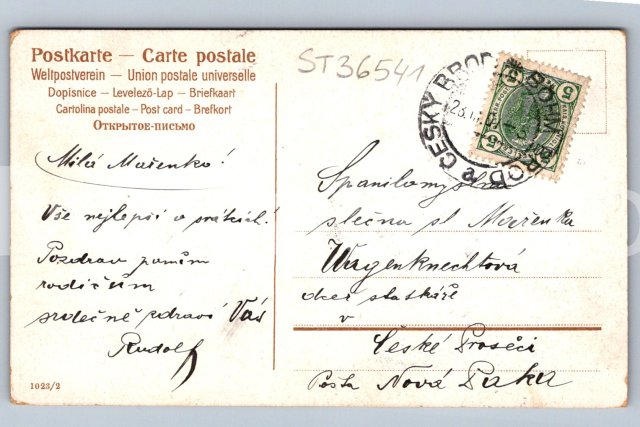 Postkarte — Carte postale
Weltpostverein — Union postale universelle
Dopisnice - Levelező-Lap — Briefkaart
Cartolina postale - Post card - Brefkort
Открытое-письмо
ST36541
ČESKÝ BROD
BÖHM. BROD
5 5
5
Milá Mařenko!
Vše nejlepší o svátcích!
Pozdrav
rodičům
srdečně zdraví Vás
Rudolf
Spanilomyslná
slečna sl Mařenka
Wagenknechtová
v
České Proseči
Pošta Nová Paka
1023/2